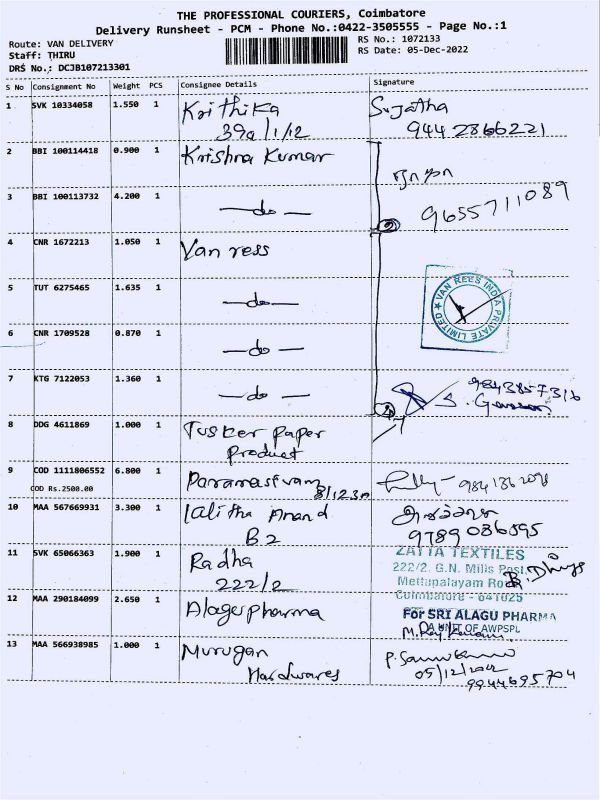 THE PROFESSIONAL COURIERS, Coimbatore
Delivery Runsheet - PCM - Phone No.:0422-3505555 - Page No.:1
Route: VAN DELIVERY
RS No.: 1072133
Staff: THIRU
RS Date: 05-Dec-2022
DRS No.: DCJB107213301
S No Consignment No Weight PCS Consignee Details Signature
1 SVK 10334058 1.550 1 Krithika Sujatha
39a/1/12 9442866221
2 BBI 100114418 0.900 1 Krishna Kumar
3 BBI 100113732 4.200 1 —do— 9655711089
2
4 CNR 1672213 1.050 1 Van ress
VAN REES INDIA PRIVATE LIMITED
5 TUT 6275465 1.635 1 —do—
6 CNR 1709528 0.870 1 —do—
7 KTG 7122053 1.360 1 —do— 9843857316
S.
8 DDG 4611869 1.000 1 Tusker paper
Product
9 COD 1111806552 6.800 1 Paramasivam
COD Rs.2500.00
10 MAA 567669931 3.300 1 Lalitha Anand
B2 9789086595
11 SVK 65066363 1.900 1 Radha
222/2
ZATTA TEXTILES
222/2, G.N. Mills Post,
Mettupalayam Road
Coimbatore - 641029
12 MAA 290184099 2.650 1 Alager pharma
For SRI ALAGU PHARMA
(A UNIT OF AWPSPL
13 MAA 566938985 1.000 1 Murugan
Hardwares 05/12/2022
9944695704